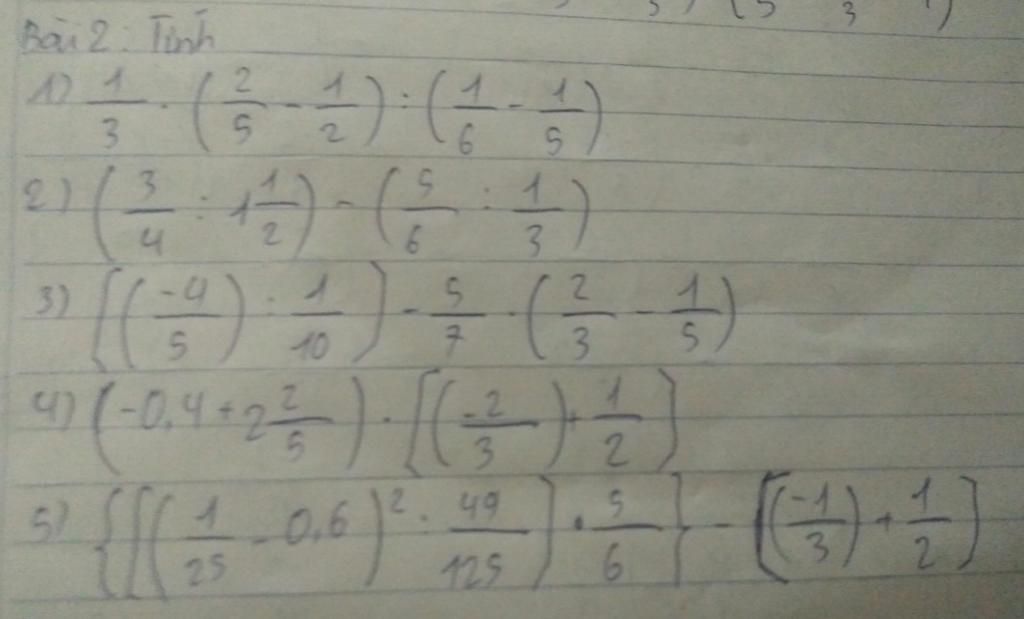 Bài 2: Tính
1) 1/3 . (2/5 - 1/2) : (1/6 - 1/5)
2) (3/4 : 1 1/2) - (5/6 : 1/3)
3) [(-4/5) : 1/10] - 5/7 . (2/3 - 1/5)
4) (-0,4 + 2 2/5) . [(-2/3) + 1/2]
5) {[(1/25 - 0,6)² : 49/125] . 5/6} - [(-1/3) + 1/2]